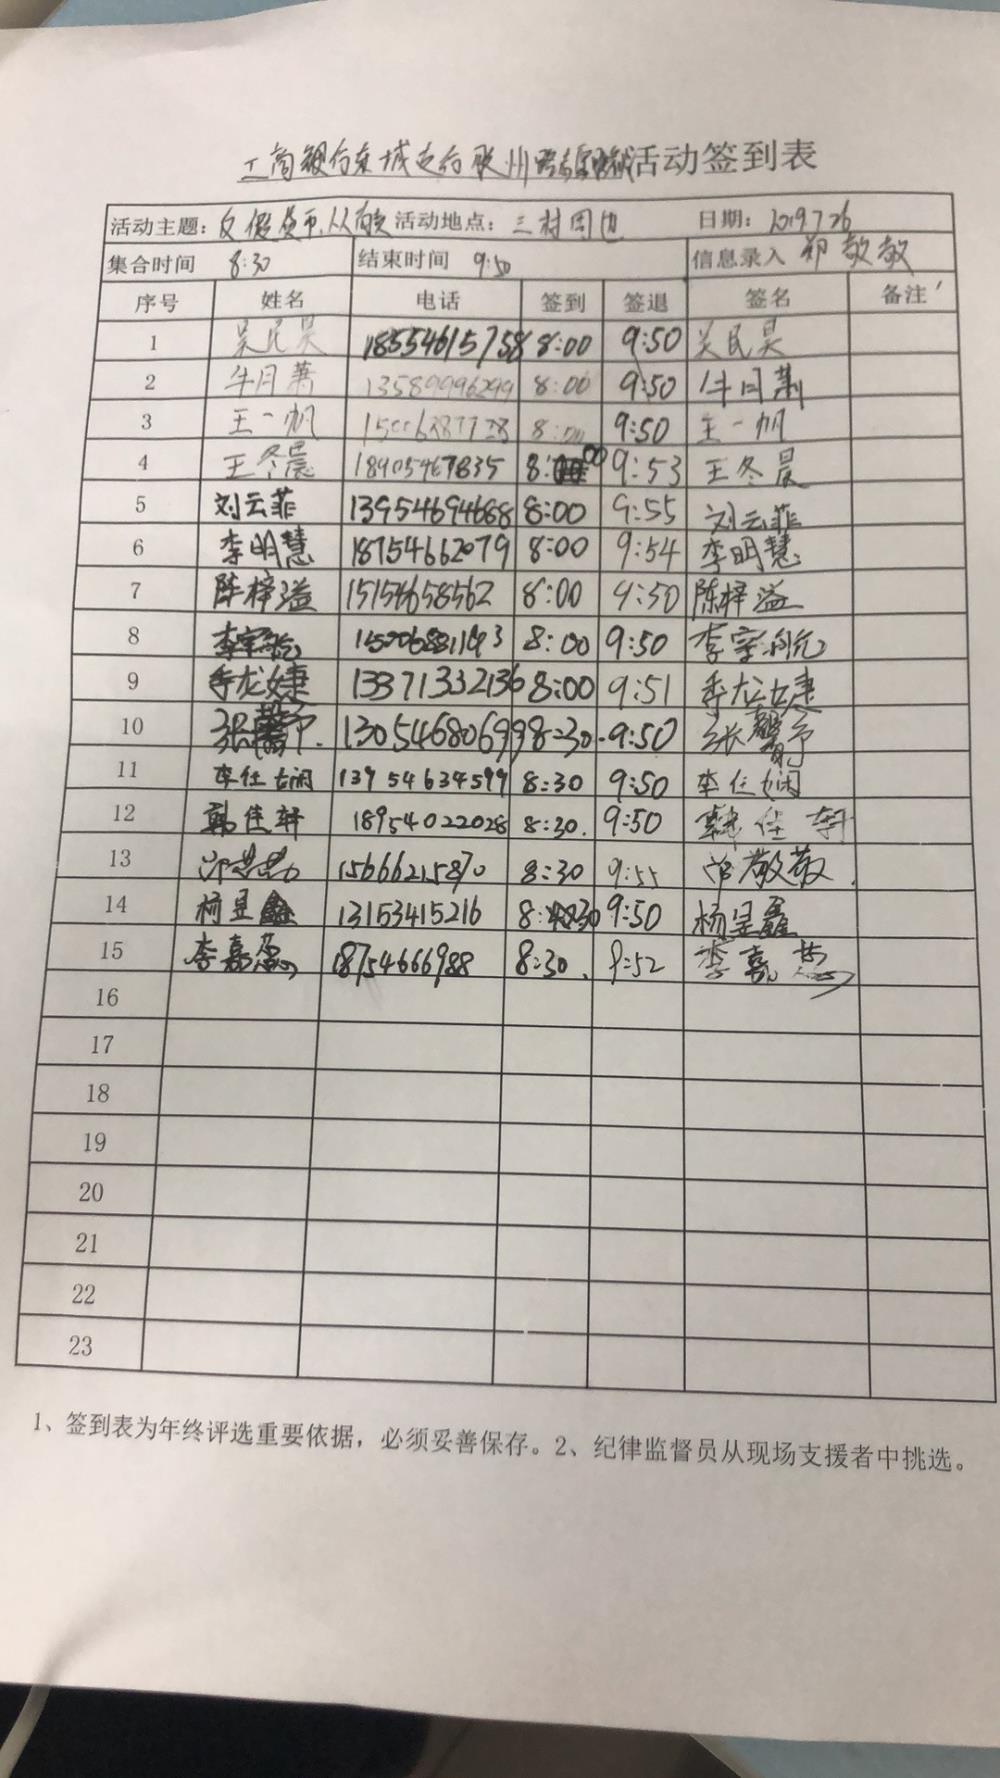 工商银行东城支行胶州路 活动签到表
活动主题：反假货币,从 活动地点：三村周边 日期：2019.7.26
集合时间 8:30 结束时间 9:50 信息录入 郑敬敬
序号 姓名 电话 签到 签退 签名 备注
1 吴民昊 18554615758 8:00 9:50 吴民昊
2 牛月萧 13589996299 8:00 9:50 牛月萧
3 王一帆 15006387728 8:00 9:50 王一帆
4 王冬晨 18905467835 8:00 9:53 王冬晨
5 刘云菲 13954694668 8:00 9:55 刘云菲
6 李明慧 18754662079 8:00 9:54 李明慧
7 陈梓溢 15154658562 8:00 9:50 陈梓溢
8 李宇航 15006881143 8:00 9:50 李宇航
9 季龙婕 13371332136 8:00 9:51 季龙婕
10 张馨予 13054680699 8:30 9:50 张馨予
11 李仕娴 13954634599 8:30 9:50 李仕娴
12 韩佳轩 18954022028 8:30 9:50 韩佳轩
13 15666215870 8:30 9:55 敬敬
14 杨昱鑫 13153415216 8:30 9:50 杨昱鑫
15 李嘉 18754666988 8:30 9:52 李嘉
16
17
18
19
20
21
22
23
1、签到表为年终评选重要依据，必须妥善保存。2、纪律监督员从现场支援者中挑选。